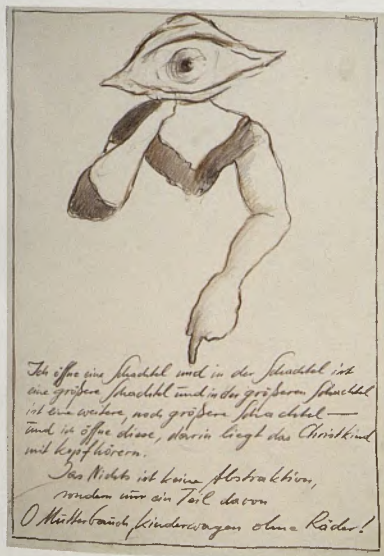 Ich öffne eine Schachtel und in der Schachtel ist
eine größere Schachtel und in der größeren Schachtel
ist eine weitere, noch größere Schachtel —
und ich öffne diese, darin liegt das Christkind
mit Kopfhörern.
Das Nichts ist keine Abstraktion,
sondern nur ein Teil davon
O Mutterbauch, Kinderwagen ohne Räder!